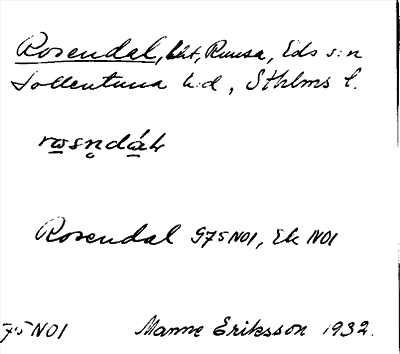 Rosendal, lht, Runsa, Eds s:n
Sollentuna h:d, Sthlms l.
rosn̥dáɫ
Rosendal 975NO1, Ek NO1
75NO1 Manne Eriksson 1932.